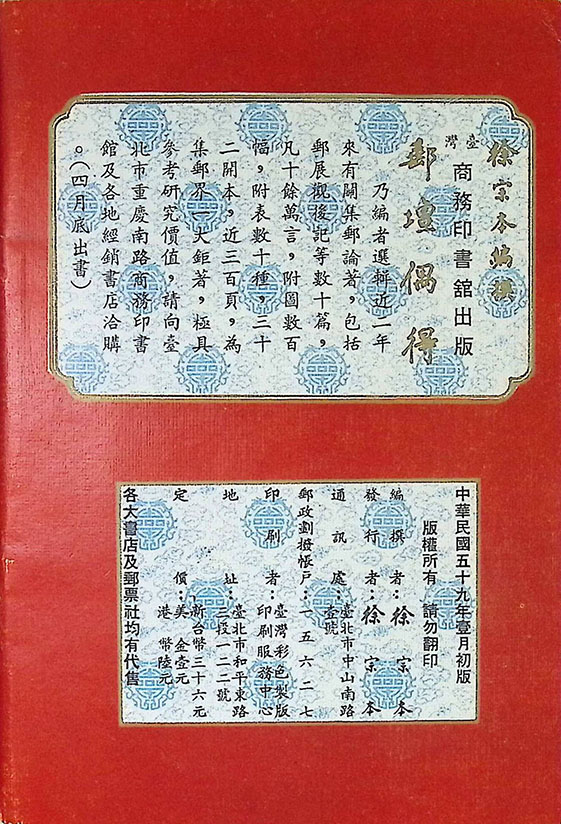 徐宗本編撰
臺灣商務印書館出版
郵壇偶得
乃編者選輯近一年
來有關集郵論著，包括
郵展觀後記等數十篇，
凡十餘萬言，附圖數百
幅，附表數十種，三十
二開本，近三百頁，為
集郵界一大鉅著，極具
參考研究價值，請向臺
北市重慶南路商務印書
館及各地經銷書店洽購
。（四月底出書）
中華民國五十九年壹月初版
版權所有　請勿翻印
編撰者：徐宗本
發行者：徐宗本
通訊處：臺北市中山南路
壹號
郵政劃撥帳戶：一五六二一七
印刷者：臺灣彩色製版
印刷服務中心
地址：臺北市和平東路
三段一二二號
定價：新台幣三十六元
美金壹元
港幣陸元
各大書店及郵票社均有代售